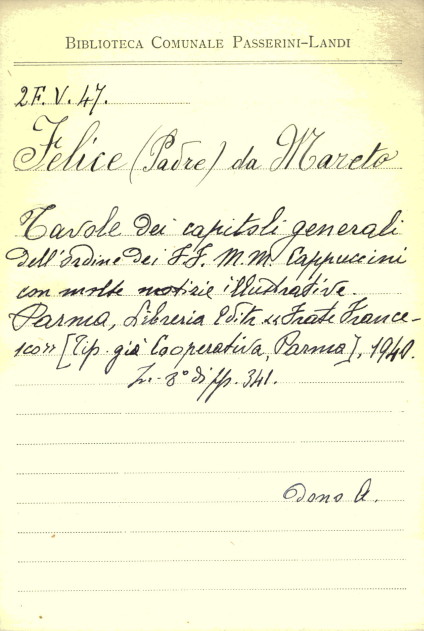 BIBLIOTECA COMUNALE PASSERINI-LANDI
2F.V.47.
Felice (Padre) da Mareto
Tavole dei capitoli generali
dell'ordine dei FF. M.M. Cappuccini
con molte notizie illustrative.
Parma, Libreria Editr. «Frate France-
sco» [Tip. già Cooperativa, Parma], 1940.
in-8° di pp. 341.
Dono A.